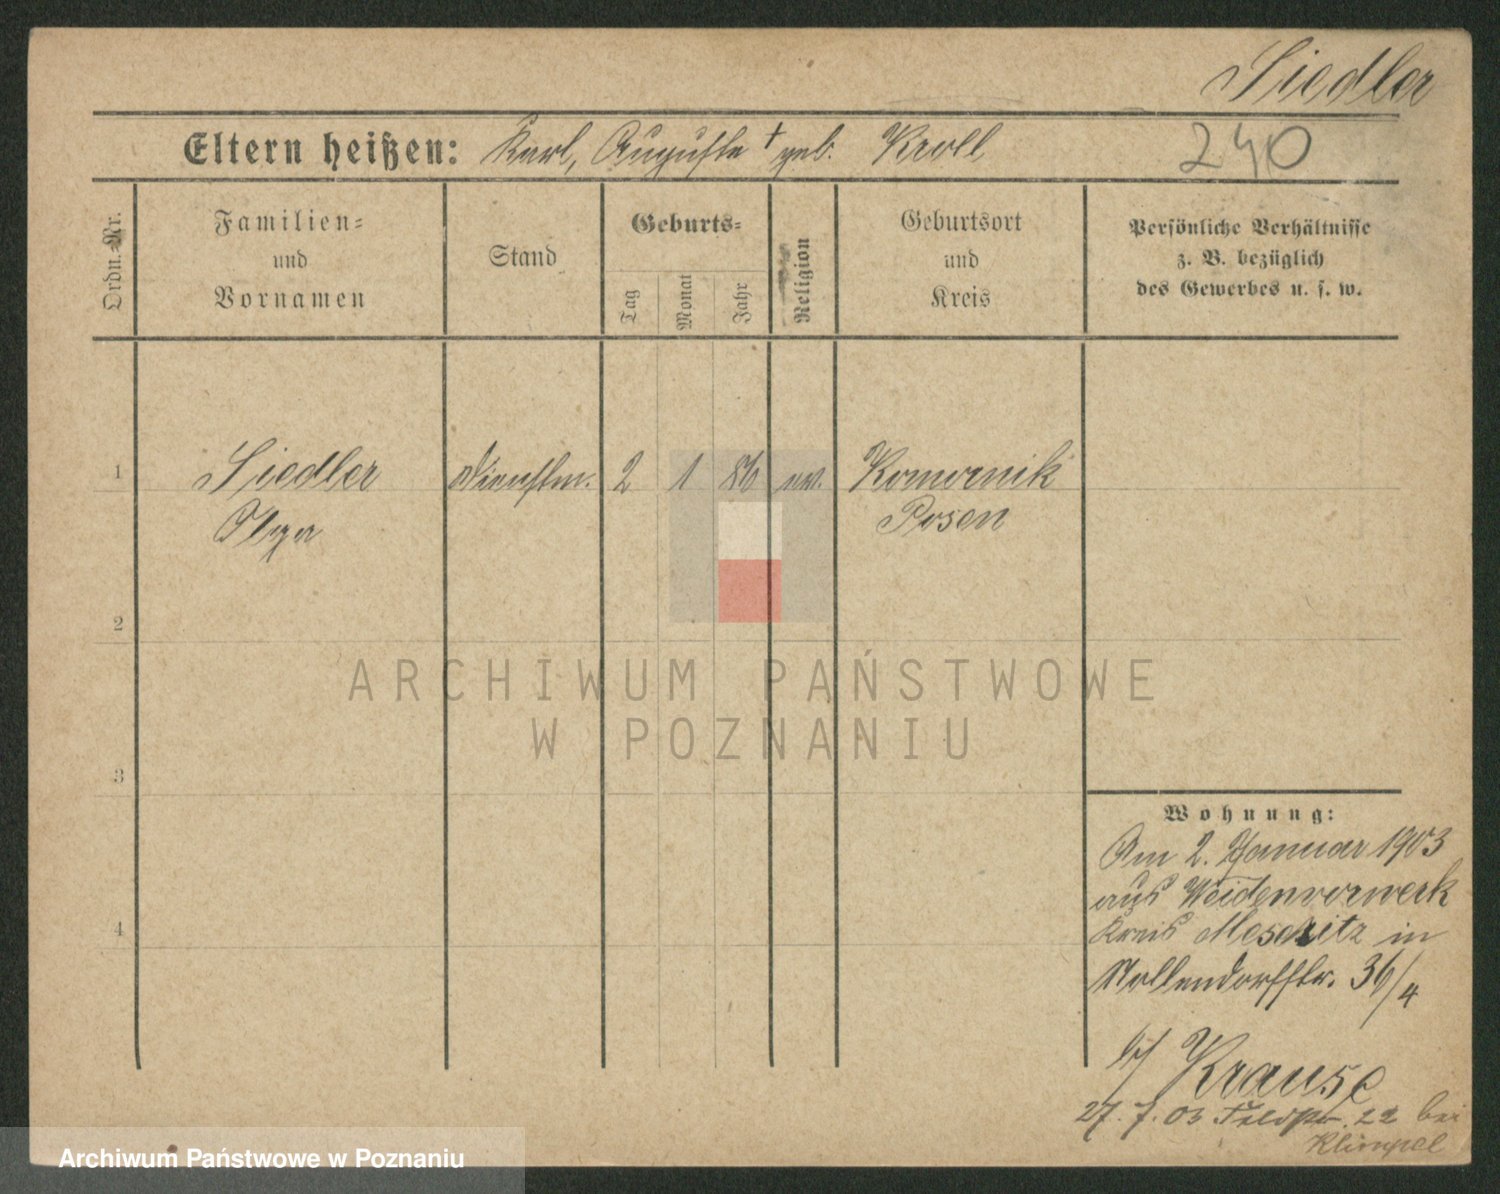 Siedler
Eltern heißen: Karl, Auguste † geb. Kroll 240
Ordn.-Nr.
Familien-
und
Vornamen
Stand
Geburts-
Tag
Monat
Jahr
Religion
Geburtsort
und
Kreis
Persönliche Verhältnisse
z. B. bezüglich
des Gewerbes u. s. w.
1 Siedler Dienstm. 2 1 86 ev. Komornik
Olga Posen
2
3
4
ARCHIWUM PAŃSTWOWE
W POZNANIU
Wohnung:
Am 2. Januar 1903
aus Weidenvorwerk
Kreis Meseritz in
Nollendorfstr. 36/4
b/ Krause
27. 7. 03 Feldstr. 22 bei
Klimpel
Archiwum Państwowe w Poznaniu